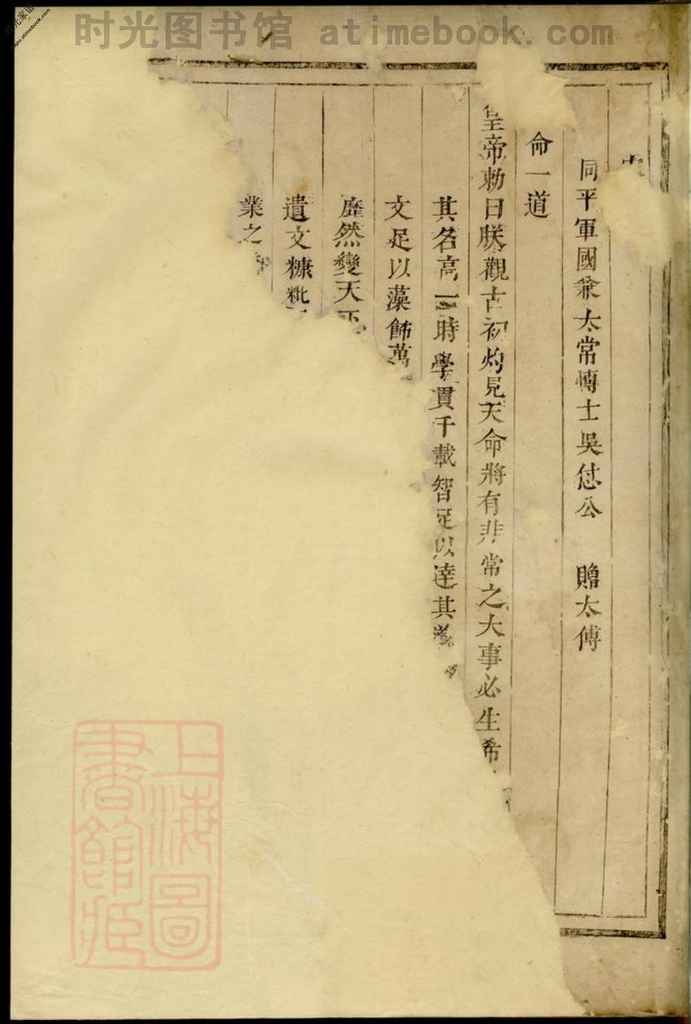 时光图书馆 atimebook.com
同平軍國兼太常博士吳侁公 贈太傅
命一道
皇帝勅曰朕觀古初灼見天命將有非常之大事必生希
其名高一時學貫千載智足以達其
文足以藻飾萬
靡然變天下
遺文糠粃
業之
上海圖書館藏